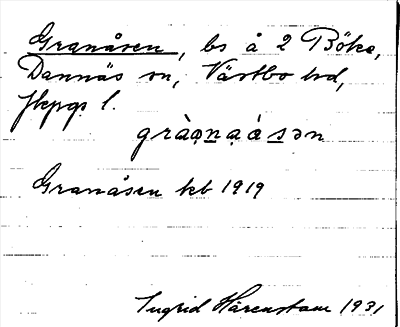 Granåsen, bs å 2 Böke,
Dannäs sn, Västbo hd,
Jkpgs l.
gràǫnạásən
Granåsen kb 1919
Ingrid Hårenstam 1931